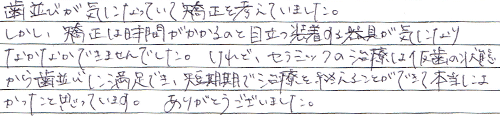 歯並びが気になっていて矯正を考えていました。
しかし、矯正は時間がかかるのと目立つ装着する器具が気になり
なかなかできませんでした。けれど、セラミックの治療は仮歯の状態
から歯並びに満足でき、短期期で治療を終えることができて本当によ
かったと思っています。 ありがとうございました。